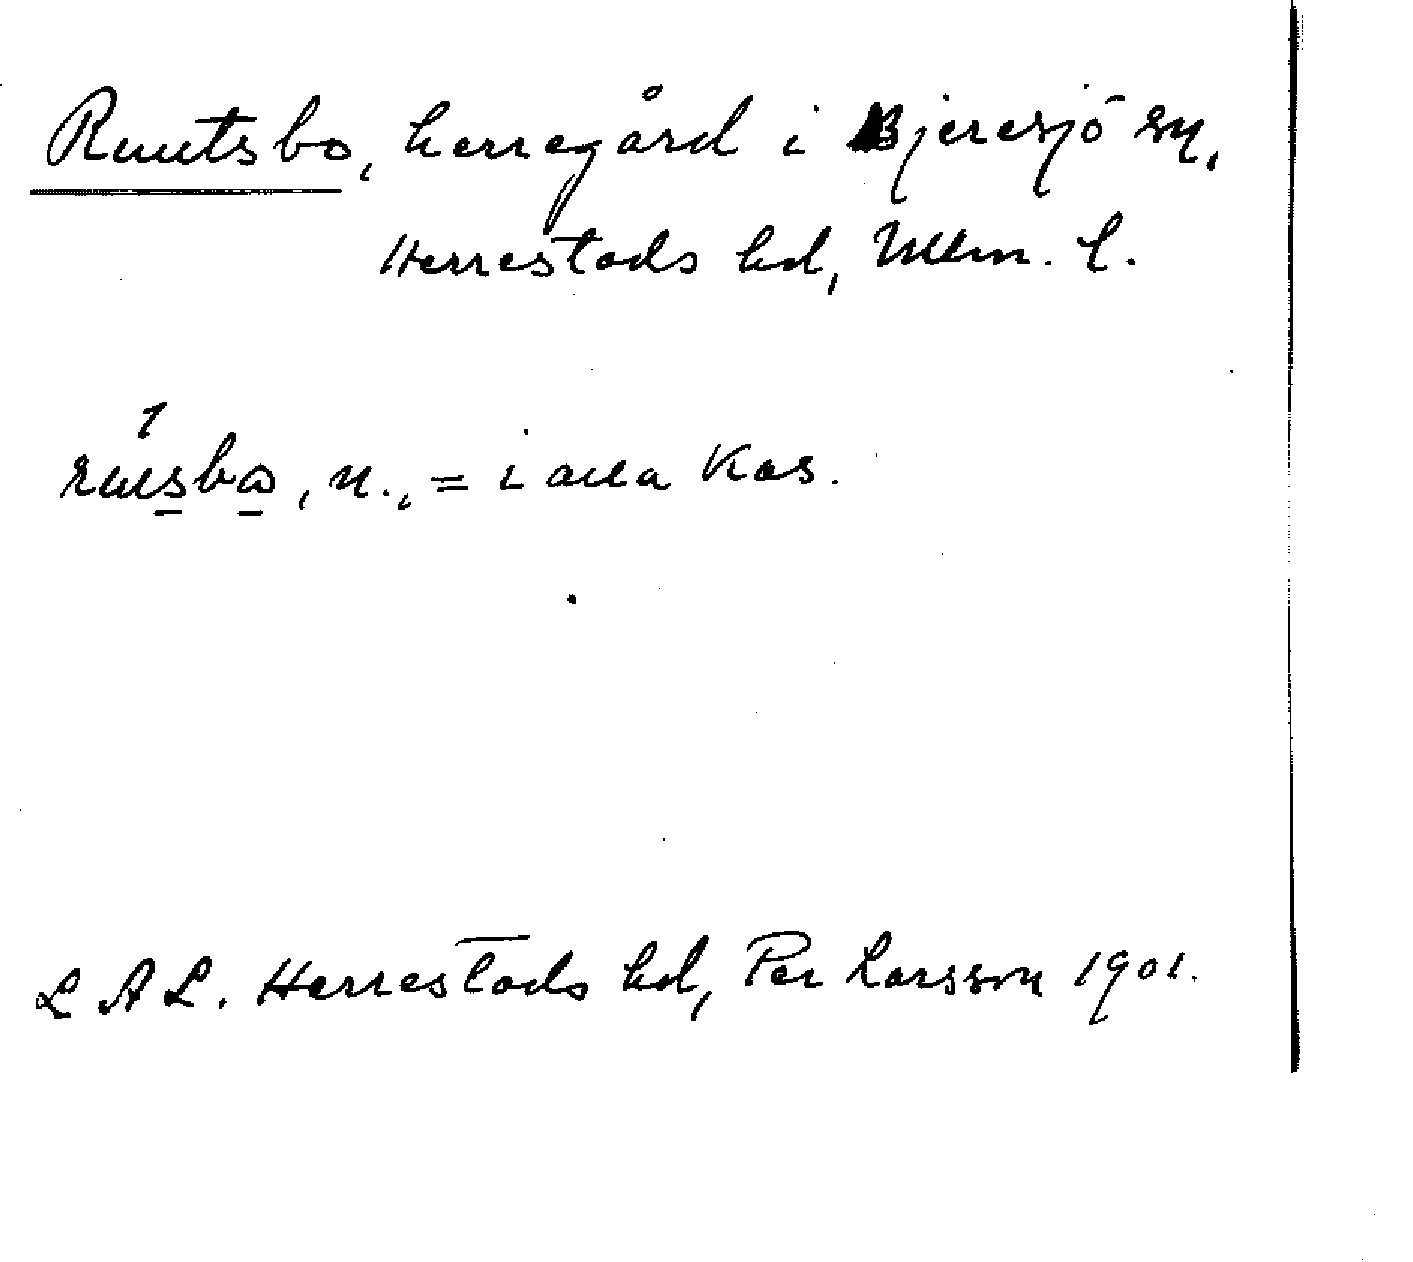 Ruutsbo, herregård i Bjeresjö sn,
Herrestads hd, Mlm. l.
n., = i alla kas.
L A L. Herrestads hd, Per Larsson 1901.